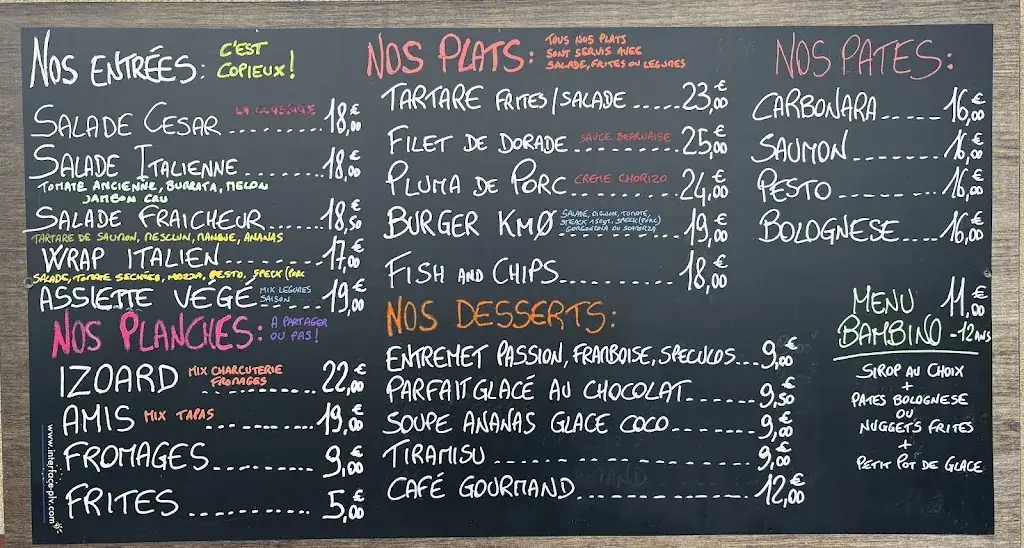 NOS ENTRÉES: C'EST
COPIEUX!
SALADE CESAR LA CLASSIQUE 18,00€
SALADE ITALIENNE 18,00€
TOMATE ANCIENNE, BURRATA, MELON
JAMBON CRU
SALADE FRAICHEUR 18,50€
TARTARE DE SAUMON, MESCLUN, MANGUE, ANANAS
WRAP ITALIEN 17,00€
SALADE, TOMATE SECHÉES, MOZZA, PESTO, SPECK (PORC
ASSIETTE VÉGÉ MIX LEGUMES
SAISON 19,00€
NOS PLANCHES: A PARTAGER
OU PAS!
IZOARD MIX CHARCUTERIE
FROMAGES 22,00€
AMIS MIX TAPAS 19,00€
FROMAGES 9,00€
FRITES 5,00€
www.interface-plv.com
NOS PLATS: TOUS NOS PLATS
SONT SERVIS AVEC
SALADE, FRITES OU LEGUMES
TARTARE FRITES/SALADE 23,00€
FILET DE DORADE SAUCE BEARNAISE 25,00€
PLUMA DE PORC CREME CHORIZO 24,00€
BURGER KMØ SALADE, OIGNON, TOMATE,
STEACK 150gr, SPECK (PORC)
GORGONZOLA OU SCAMORZA 19,00€
FISH AND CHIPS 18,00€
NOS DESSERTS:
ENTREMET PASSION, FRAMBOISE, SPECULOS 9,00€
PARFAIT GLACÉ AU CHOCOLAT 9,50€
SOUPE ANANAS GLACE COCO 9,00€
TIRAMISU 9,00€
CAFÉ GOURMAND 12,00€
NOS PATES:
CARBONARA 16,00€
SAUMON 16,00€
PESTO 16,00€
BOLOGNESE 16,00€
MENU 11,00€
BAMBINO -12ANS
SIROP AU CHOIX
+
PATES BOLOGNESE
OU
NUGGETS FRITES
+
PETIT POT DE GLACE